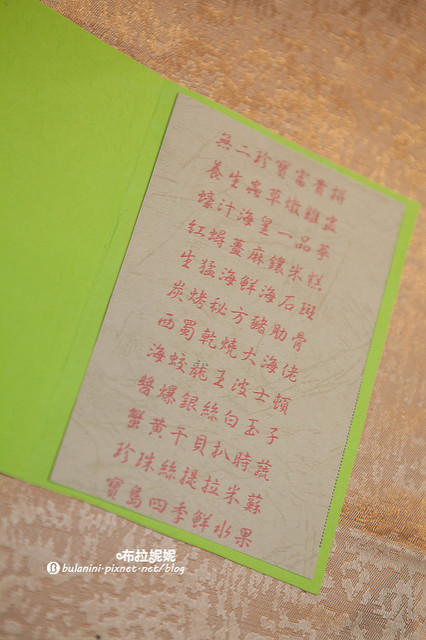 無二珍寶富貴拼
養生蟲草燉雞盅
蠔汁海皇一品蔘
紅蟳薑麻鑲米糕
生猛海鮮海石斑
炭烤秘方豬肋骨
西蜀乾燒大海佬
海蛟龍王波士頓
醬爆銀絲白玉子
蟹黃干貝扒時蔬
珍珠絲提拉米蘇
寶島四季鮮水果
布拉妮妮
B bulanini-pixnet-net/blog